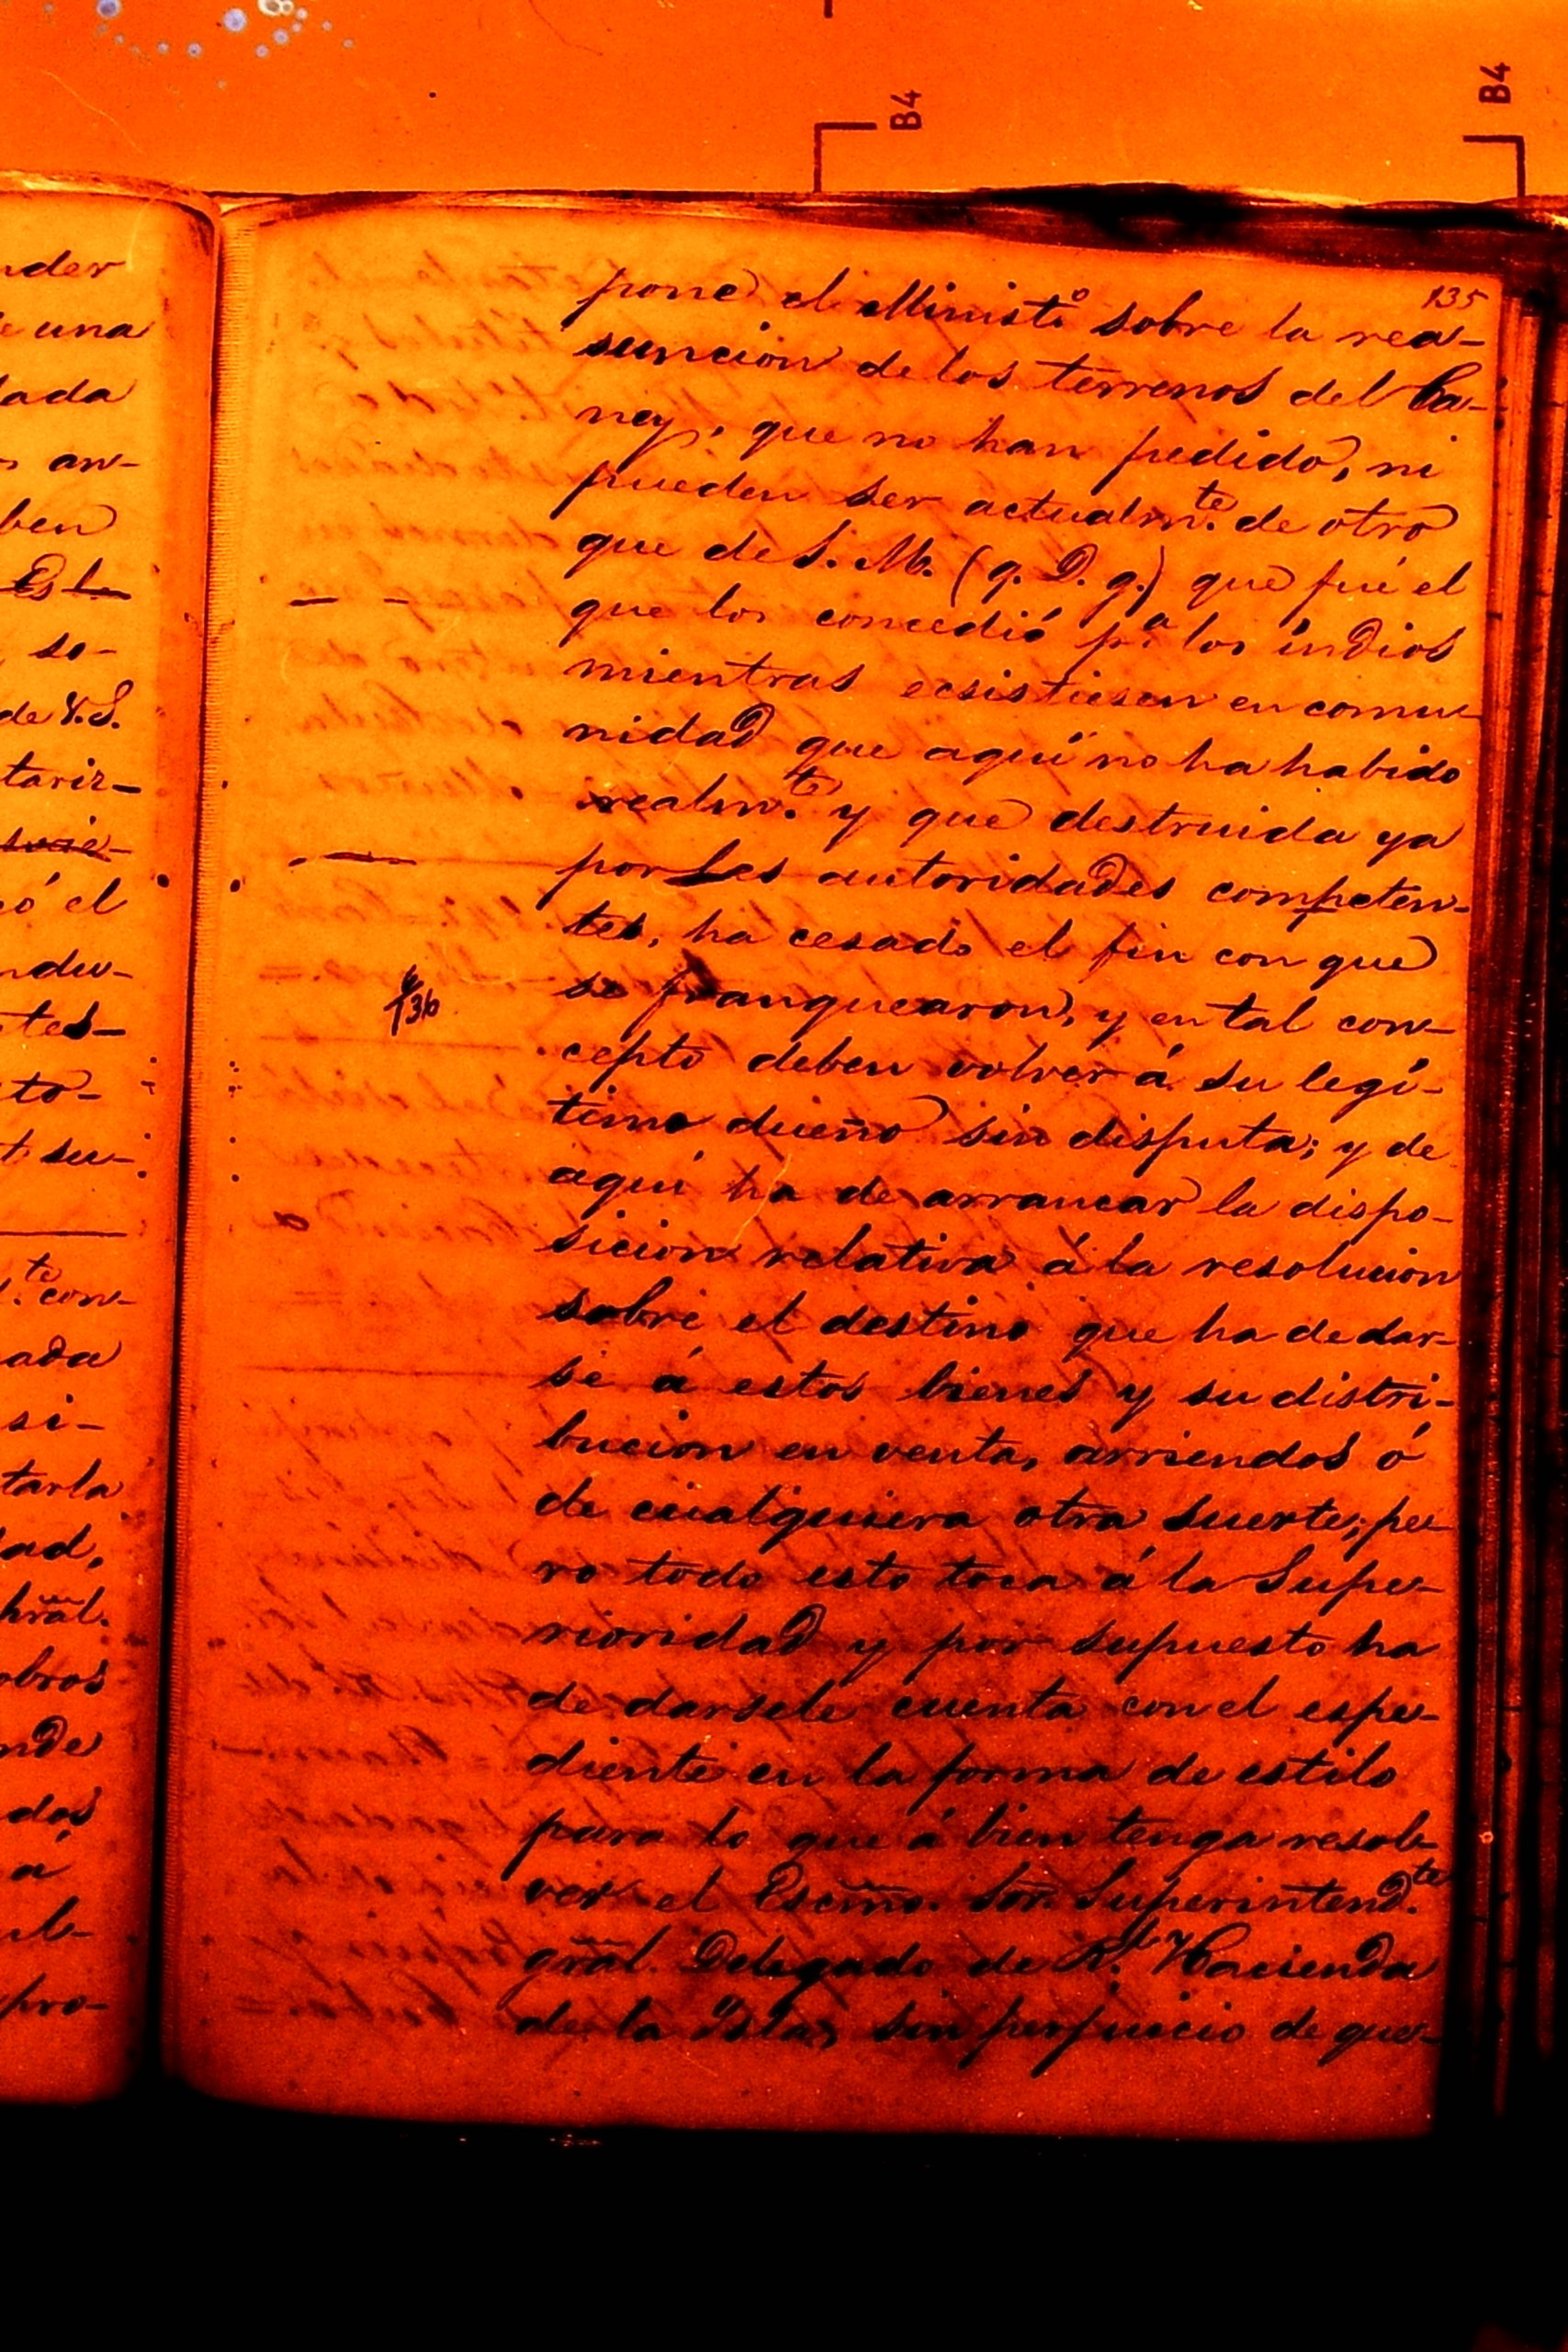 B4
B4
nder
e una
lada
s an-
ben
so-
de V.S.
tariz-
ó el
ndu-
tes-
to-
t su-
l.te con-
ada
si-
tarla
dad,
hral.
obros
nde
dos
á
ul-
pro-
135
pone el Ministo sobre la rea-
suncion de los terrenos del Ca-
ney, que no han pedido, ni
pueden ser actualm.te de otro
que de S. M. (q. D. g.) que fué el
que los concedió p.a los indios
mientras ecsistiesen en comu-
nidad que aquí no ha habido
realm.te y que destruida ya
por las autoridades competen-
tes, ha cesado el fin con que
136
se franquearon, y en tal con-
cepto deben volver á su legí-
timo dueño sin disputa; y de
aquí ha de arrancar la dispo-
sicion relativa á la resolucion
sobre el destino que ha de dar-
se á estos bienes y su distri-
bucion en venta, arriendos ó
de cualquiera otra suerte; pe-
ro todo esto toca á la Supe-
rioridad y por supuesto ha
de darsele cuenta con el espe-
diente en la forma de estilo
para lo que á bien tenga resol-
ver el Escmo. Sor. Superintend.te
gral. Delegado de R.l Hacienda
de la Isla, sin perjuicio de que-